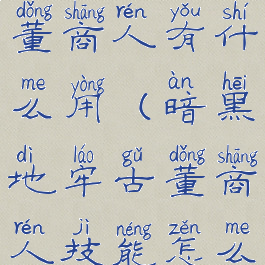 dǒng shāng rén yǒu shí
董商人有什
me yòng àn hēi
么用（暗黑
dì láo gǔ dǒng shāng
地牢古董商
rén jì néng zěn me
人技能怎么